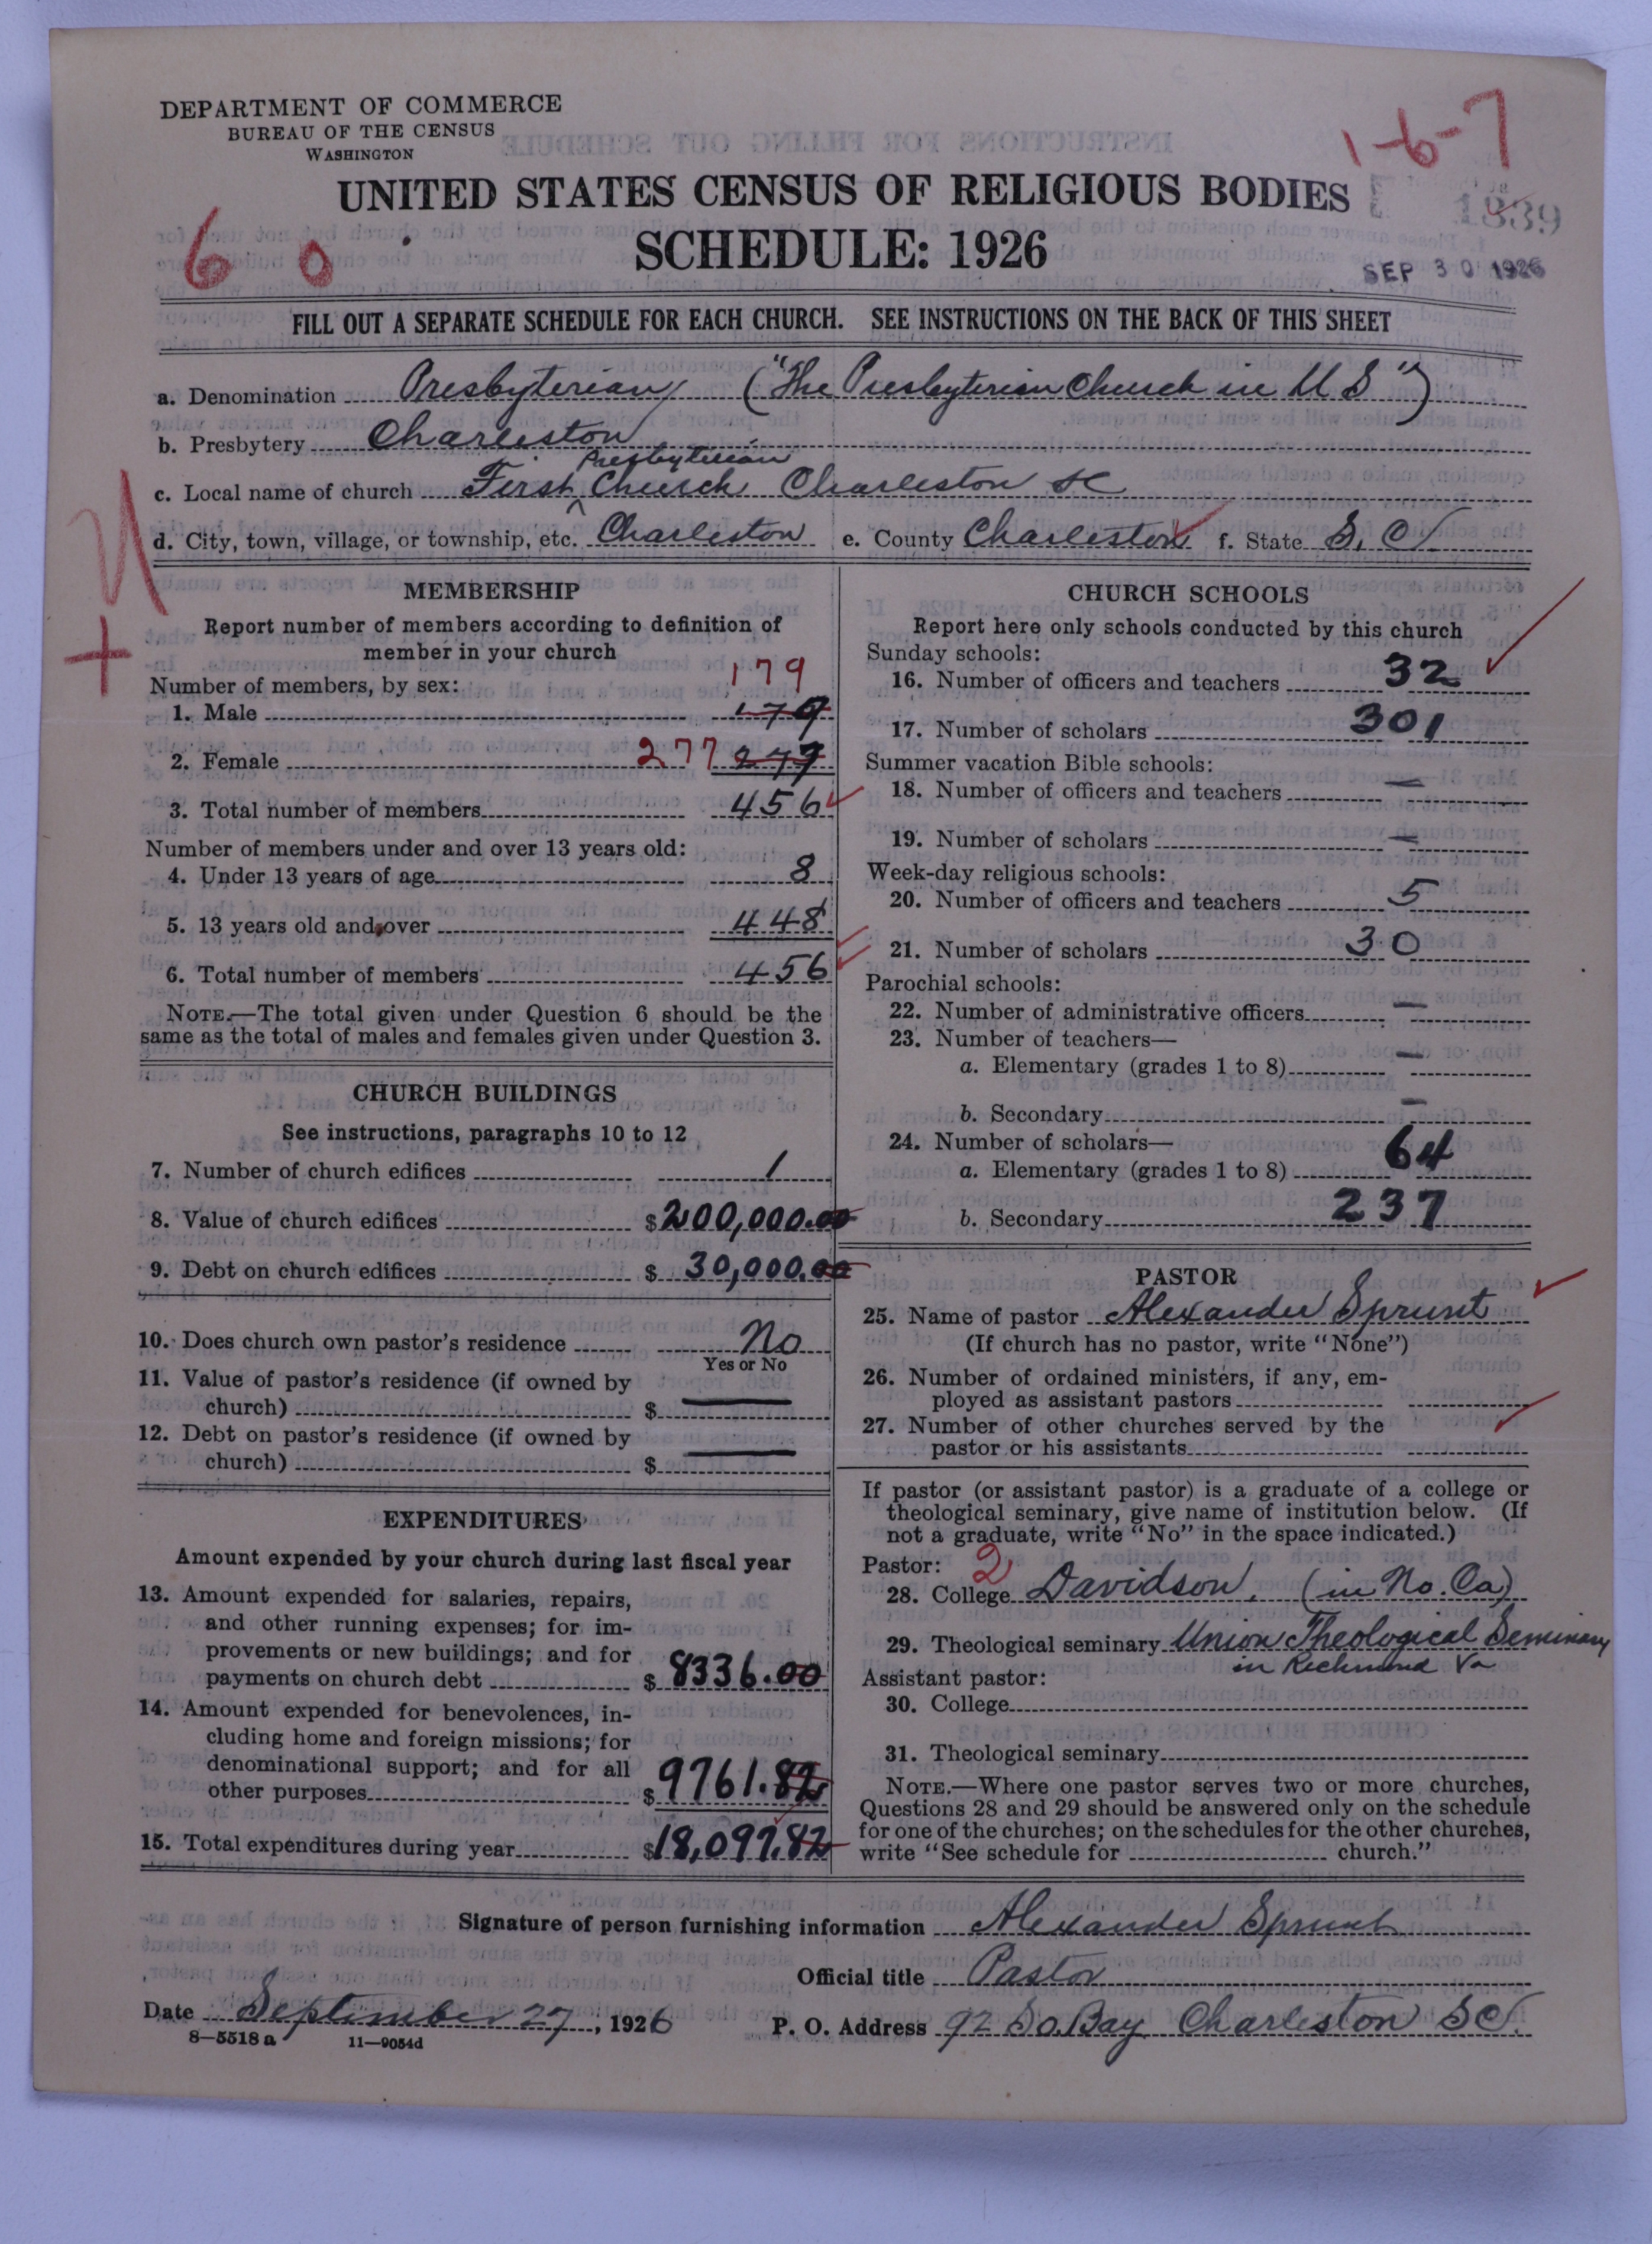 DEPARTMENT OF COMMERCE
BUREAU OF THE CENSUS
WASHINGTON
1-6-7
UNITED STATES CENSUS OF RELIGIOUS BODIES
SCHEDULE: 1926
6 0
1839
SEP 30 1926
FILL OUT A SEPARATE SCHEDULE FOR EACH CHURCH. SEE INSTRUCTIONS ON THE BACK OF THIS SHEET
a. Denomination Presbyterian ("The Presbyterian Church in U S")
b. Presbytery Charleston
Presbyterian
c. Local name of church First ^ Church Charleston SC
d. City, town, village, or township, etc. Charleston e. County Charleston f. State S. C.
MEMBERSHIP
Report number of members according to definition of
member in your church
Number of members, by sex:
179
1. Male 179
2. Female 277 277
3. Total number of members 456
Number of members under and over 13 years old:
4. Under 13 years of age 8
5. 13 years old and over 448
6. Total number of members 456
NOTE.—The total given under Question 6 should be the
same as the total of males and females given under Question 3.
CHURCH BUILDINGS
See instructions, paragraphs 10 to 12
7. Number of church edifices 1
8. Value of church edifices $200,000.00
9. Debt on church edifices $ 30,000.00
10. Does church own pastor's residence No
Yes or No
11. Value of pastor's residence (if owned by
church) $ —
12. Debt on pastor's residence (if owned by
church) $ —
EXPENDITURES
Amount expended by your church during last fiscal year
13. Amount expended for salaries, repairs,
and other running expenses; for im-
provements or new buildings; and for
payments on church debt $ 8336.00
14. Amount expended for benevolences, in-
cluding home and foreign missions; for
denominational support; and for all
other purposes $9761.82
15. Total expenditures during year $18,097.82
CHURCH SCHOOLS
Report here only schools conducted by this church
Sunday schools:
16. Number of officers and teachers 32
17. Number of scholars 301
Summer vacation Bible schools:
18. Number of officers and teachers —
19. Number of scholars —
Week-day religious schools:
20. Number of officers and teachers 5
21. Number of scholars 30
Parochial schools:
22. Number of administrative officers —
23. Number of teachers—
a. Elementary (grades 1 to 8) —
b. Secondary —
24. Number of scholars—
a. Elementary (grades 1 to 8) 64
b. Secondary 237
PASTOR
25. Name of pastor Alexander Sprunt
(If church has no pastor, write "None")
26. Number of ordained ministers, if any, em-
ployed as assistant pastors
27. Number of other churches served by the
pastor or his assistants
If pastor (or assistant pastor) is a graduate of a college or
theological seminary, give name of institution below. (If
not a graduate, write "No" in the space indicated.)
Pastor: 2
28. College Davidson, (in No. Ca)
29. Theological seminary Union Theological Seminary
in Richmond Va
Assistant pastor:
30. College
31. Theological seminary
NOTE.—Where one pastor serves two or more churches,
Questions 28 and 29 should be answered only on the schedule
for one of the churches; on the schedules for the other churches,
write "See schedule for church."
Signature of person furnishing information Alexander Sprunt
Official title Pastor
Date September 27, 1926 P. O. Address 92 So. Bay Charleston SC.
8—5518a 11—9054d